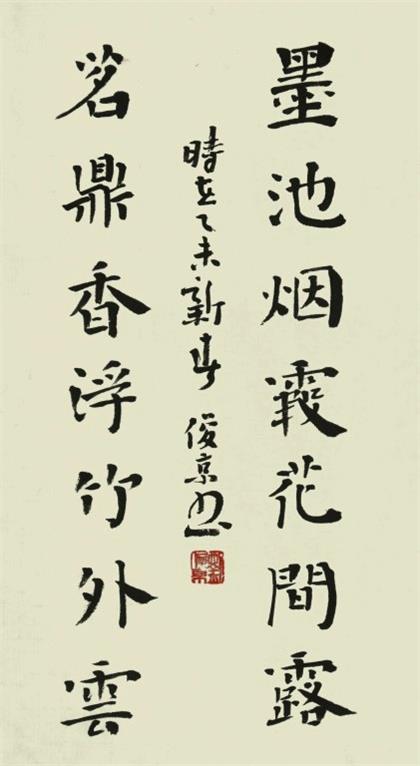 墨池烟霞花間露
茗鼎香浮竹外雲
時在乙未新春 俊京书